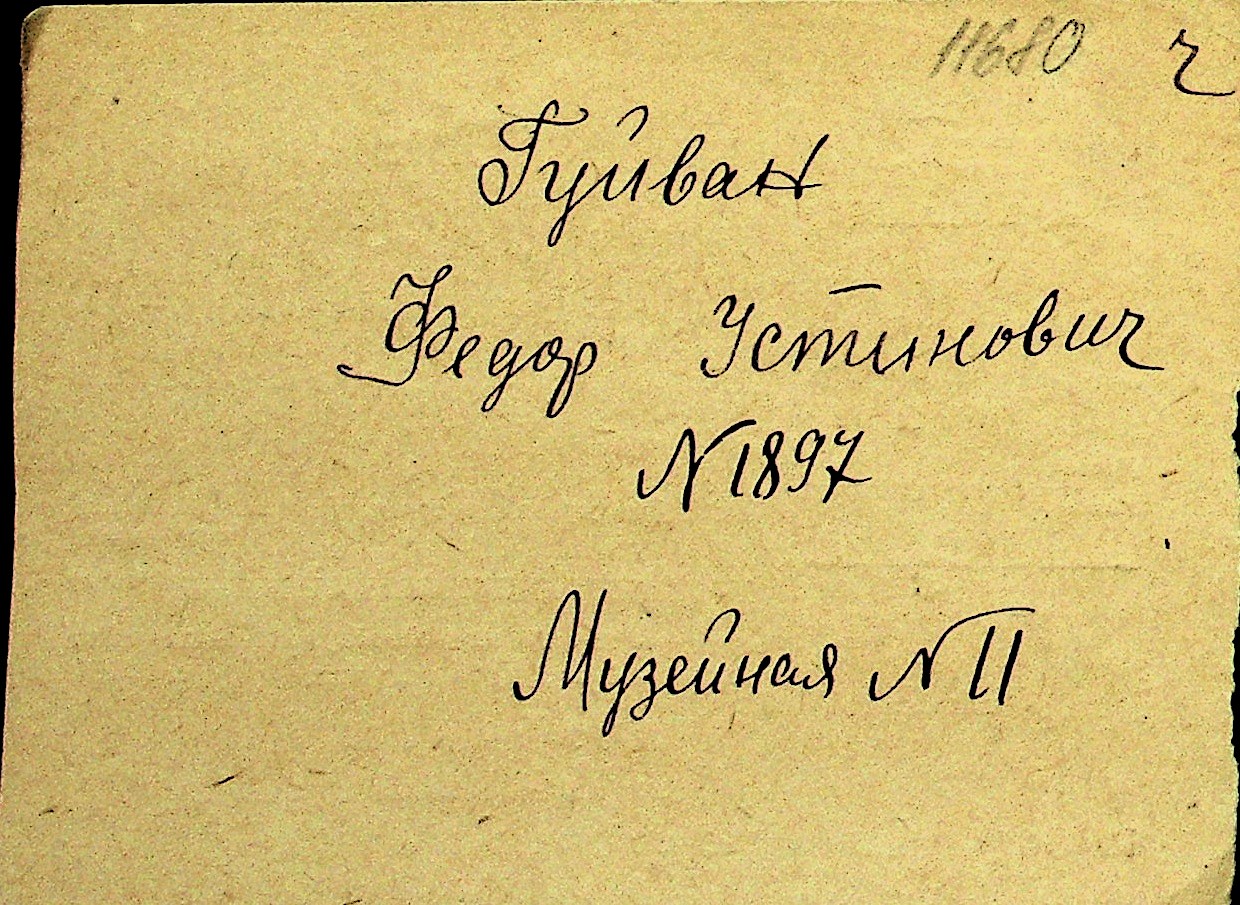 11680 ч
Гуйван
Федор Устинович
N 1897
Музейная N 11